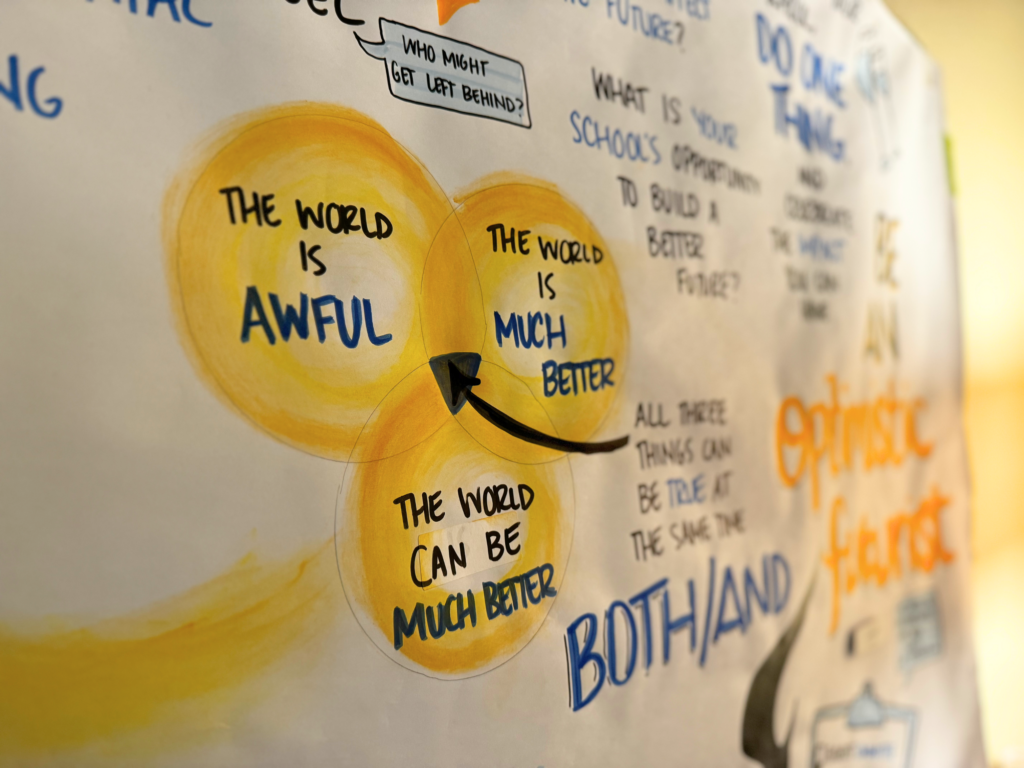 NG
WHO MIGHT
GET LEFT BEHIND?
FUTURE?
WHAT IS YOUR
SCHOOL'S OPPORTUNITY
TO BUILD A
BETTER
FUTURE?
DO ONE
THING
AND
CELEBRATE
THE IMPACT
YOU CAN
THE WORLD
IS
AWFUL
THE WORLD
IS
MUCH
BETTER
THE WORLD
CAN BE
MUCH BETTER
ALL THREE
THINGS CAN
BE TRUE AT
THE SAME TIME
BOTH/AND
BE
AN
Optimistic
futurist